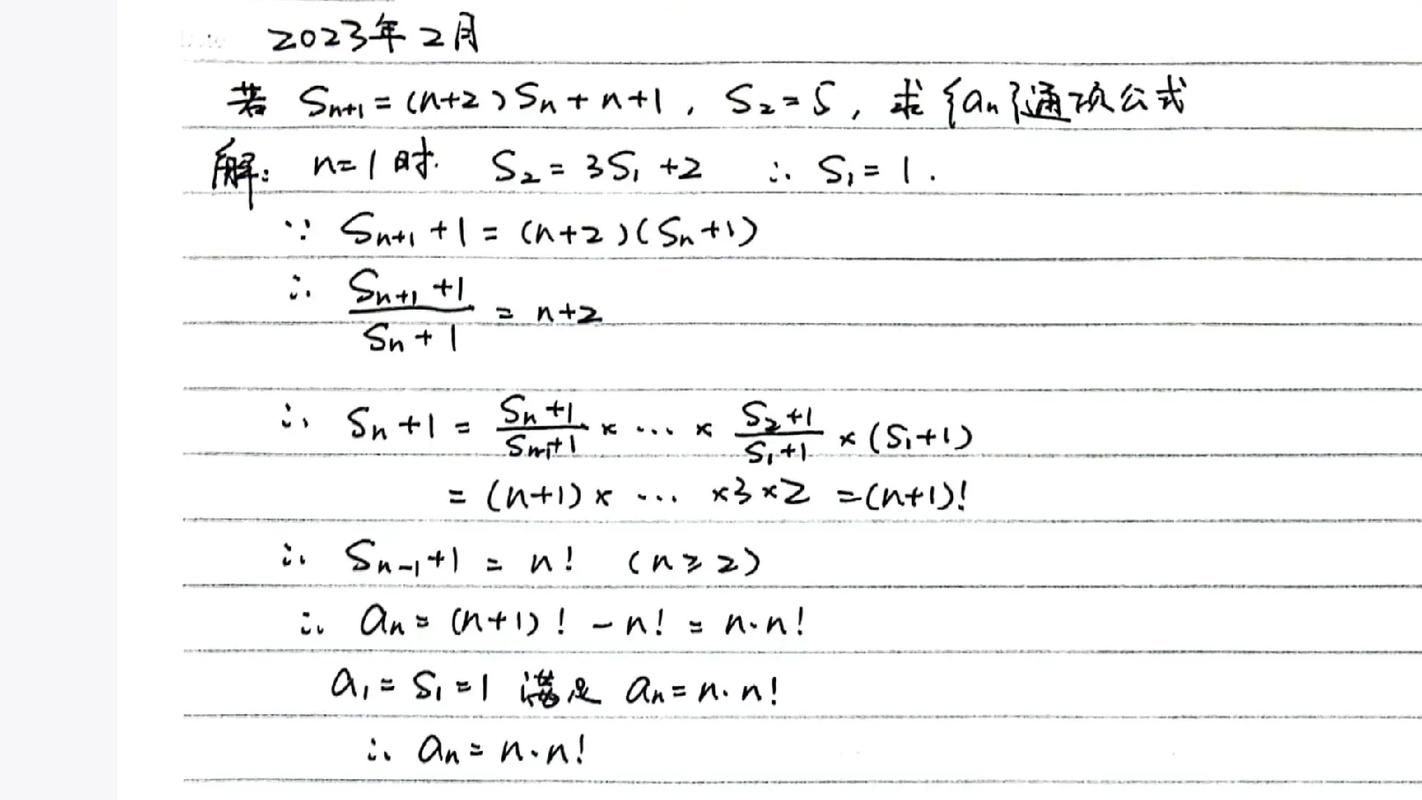 2023年2月
若 Sₙ₊₁=(n+2)Sₙ+n+1, S₂=5, 求{aₙ}通项公式
解: n=1时. S₂=3S₁+2 ∴ S₁=1.
∵ Sₙ₊₁+1=(n+2)(Sₙ+1)
∴ (Sₙ₊₁+1)/(Sₙ+1) = n+2
∴ Sₙ+1 = (Sₙ+1)/(Sₙ₋₁+1) × ... × (S₂+1)/(S₁+1) × (S₁+1)
= (n+1)× ... ×3×2 =(n+1)!
∴ Sₙ₋₁+1 = n! (n≥2)
∴ aₙ= (n+1)! -n! = n·n!
a₁=S₁=1 满足 aₙ=n·n!
∴ aₙ= n·n!